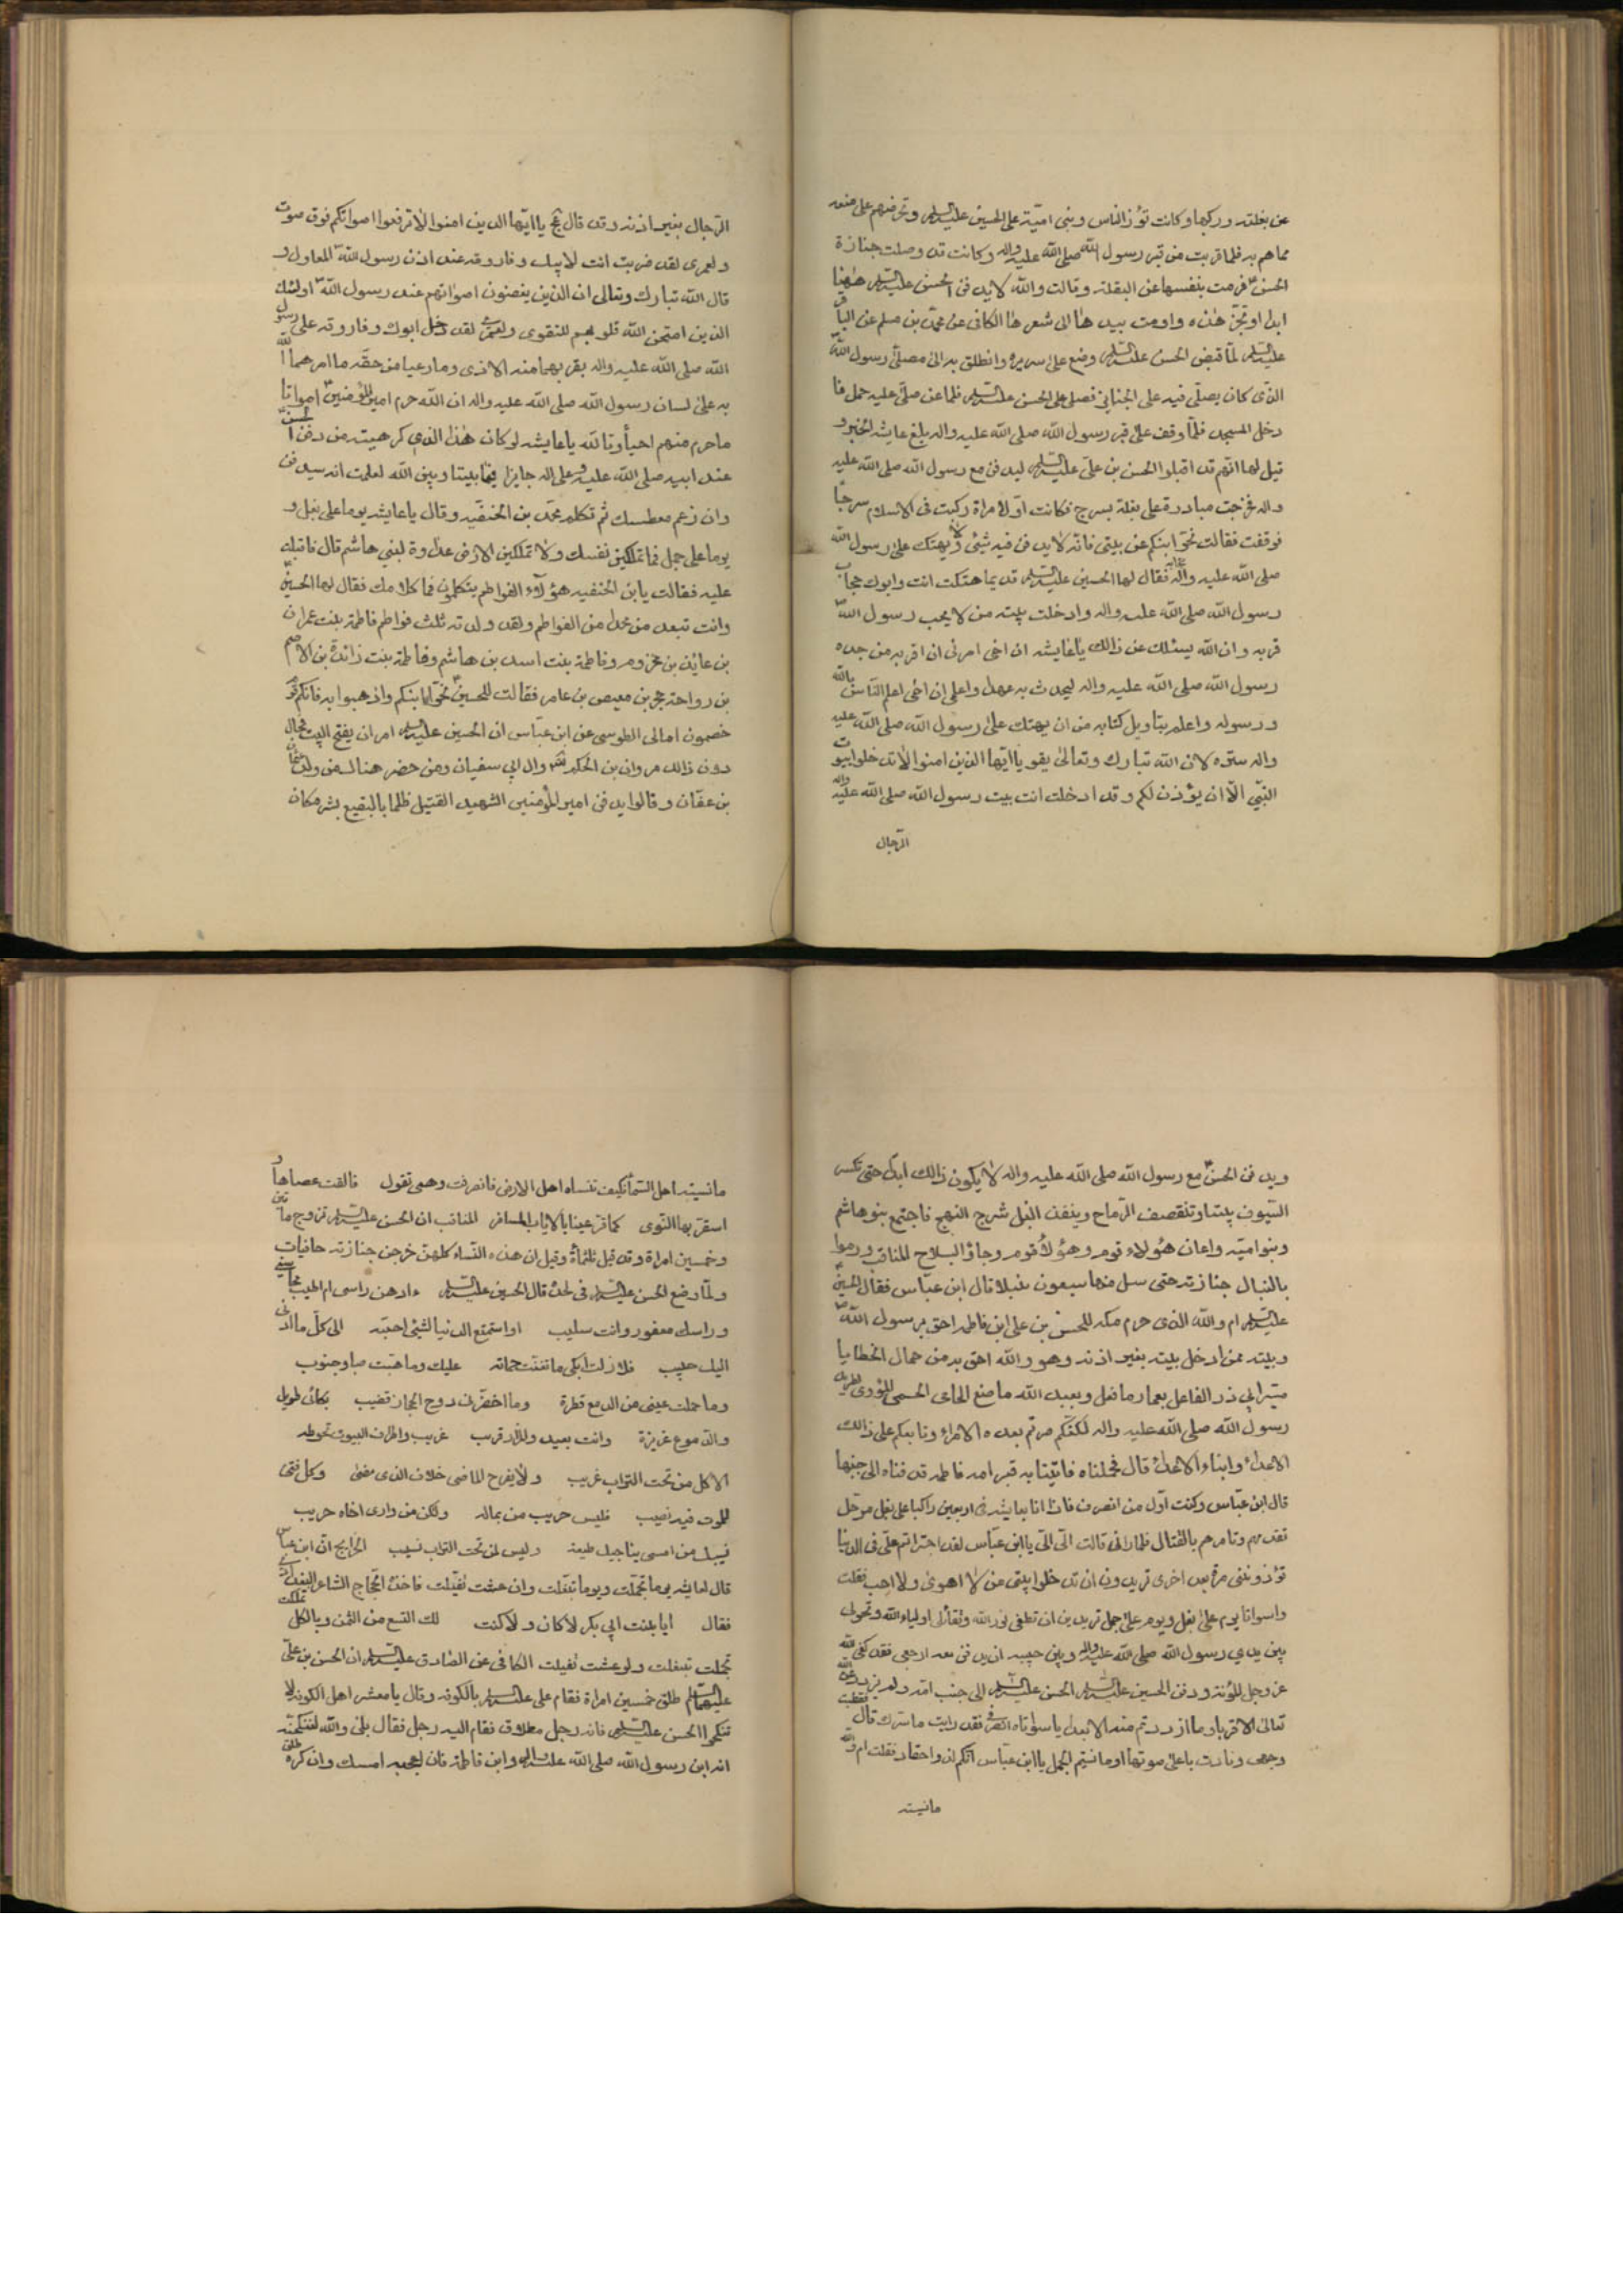 عن بغلته وركبها وكانت تؤز الناس وبنى اميّة على الحسين عليه السلم وتحرضهم على منعه
مما هم به فلما قربت من قبر رسول الله صلى الله عليه واله وكانت قد وصلت جنازة
الحسن فرمت بنفسها عن البغلة وقالت والله لا يدفن الحسن عليه السلم هٰهنا
ابدا او تجز هذه واومت بيدها الى شعرها الكافى عن محمد بن مسلم عن الباقر
عليه السلم لمّا قبض الحسن عليه السلم وضع على سريره وانطلق به الى مصلّى رسول الله
الذى كان يصلّى فيه على الجنايز فصلى على الحسن عليه السلم فلما عن صلّى عليه حمل فا
دخل المسجد فلمّا وقف على قبر رسول الله صلى الله عليه واله بلغ عايشه الخبر و
قيل لها انهم قد اقبلوا الحسن بن علىّ عليه السلم ليدفن مع رسول الله صلى الله عليه
واله فخرجت مبادرة على بغلة بسرج فكانت اوّل امراة ركبت فى الاسلام سرجا
فوقفت فقالت نحّوا ابنكم عن بيتى فانّه لا يدفن فيه شيئ ولا يهتك على رسول الله
صلى الله عليه واله حجابه فقال لها الحسين عليه السلم قديما هتكت انت وابوك حجاب
رسول الله صلى الله عليه واله وادخلت بيته من لا يحب رسول الله
قربه وان الله يسئلك عن ذالك يا عايشه ان اخى امرنى ان اقربه من جده
رسول الله صلى الله عليه واله ليحدث به عهدا واعلمى ان اخى اعلم النّاس بالله
ورسوله واعلم بتاويل كتابه من ان يهتك على رسول الله صلى الله عليه
واله ستره لان الله تبارك وتعالىٰ يقو يا ايّها الذين امنوا لا تدخلوا بيوت
النّبىّ الّا ان يؤذن لكم وقد ادخلت انت بيت رسول الله صلى الله عليه واله
الرّجال
الرّجال بغير اذنه وقد قال يا ايّها الذين امنوا لا ترفعوا اصواتكم فوق صوت
ولعمرى لقد ضربت انت لابيك وفاروقه عند اذن رسول الله المعاول و
قال الله تبارك وتعالى ان الذين يغضون اصواتهم عند رسول الله اولئك
الذين امتحن الله قلوبهم للتقوى ولعمرى لقد دخل ابوك وفاروقه على رسول
الله صلى الله عليه واله بقربهما منه الاذى وما رعيا من حقّه ما امرهما الله
به على لسان رسول الله صلى الله عليه واله ان الله حرم من المؤمنين امواتا
ما حرم منهم احيأ وتالله يا عايشه لو كان هذا الذى كرهتيه من دفن الحسن
عند ابيه صلى الله عليه وعلى اله جايزا فيما بيننا وبين الله لعلمت انه سيدفن
وان رغم معطسك ثم تكلم محمّد بن الحنفيّه وقال يا عايشه يوما على بغل و
يوما على جمل فما تملكين نفسك ولا تملكين الارض عداوة لبنى هاشم قال فاقبلت
عليه فقالت يابن الحنفيه هؤلاء الفواطم يتكلمون فما كلامك فقال لها الحسين
وانت تبعد من محمدا من الفواطم ولقد ولدته ثلث فواطم فاطمة بنت عمران
بن عايذ بن مخزوم وفاطمة بنت اسد بن هاشم وفاطمة بنت زائدة بن الاصم
بن رواحة حجر بن معيص بن عامر فقالت للحسين نحّوا ابنكم واذهبوا به فانكم قوم
خصمون امالى الطوسى عن ابن عبّاس ان الحسين عليه السلم امر ان يفتح البيت فحال
دون ذالك مروان بن الحكم وال ابى سفيان ومن حضر هناك من ولد عثمان
بن عفّان وقالوا يدفن امير المؤمنين الشهيد القتيل ظلما بالبقيع بشر مكان
ويدفن الحسن مع رسول الله صلى الله عليه واله لا يكون ذالك ابدا حتى تكسر
السّيوف بيننا وتنقصف الرّماح وينفذ النبل شرج النهج فاجتمع بنو هاشم
وبنو اميّه واعان هؤلاء قوم وهؤلاء قوم وجاؤ السلاح المناقب ورموا
بالنبال جنازته حتى سل منها سبعون نبلا قال ابن عبّاس فقال الحسين
عليه السلم ام والله الذى حرم مكه للحسن بن على ابن فاطمه احق برسول الله
وبيته ممن ادخل بيته بغير اذنه وهو والله احق به من حمال الخطايا
مسيّر ابى ذر الفاعل بعمار ما فعل وبعبد الله ما صنع الحامى الحمى المؤوى لطريد
رسول الله صلى الله عليه واله لكنّكم صرتم بعده الامراء وتابعكم على ذالك
الاعداء وابناء الاعداء قال فحملناه فاتينا به قبر امه فاطمه فدفناه الى جنبها
قال ابن عبّاس وكنت اوّل من انصرف فاذا انا بعايشه فى اربعين راكبا على بغل مرحّل
تقدمهم وتامرهم بالقتال فلما رانى قالت الىّ الىّ يا ابن عبّاس لقد اجتراتم علىّ فى الدنيا
تؤذوننى مرة بعد اخرى تريدون ان تدخلوا بيتى من لا اهوى ولا احب فقلت
واسواتا يوم على بغل ويوم على جمل تريدين ان تطفى نور الله وتقاتلى اولياء الله وتحولى
بين يدي رسول الله صلى الله عليه واله وبين حبيبه ان يدفن معه ارجعى فقد كفى الله
عز وجل المؤنة ودفن الحسن عليه السلم الى جنب امه ولم يزدد من الله
تعالى الا قربا وما ازددتم منه الا بعدا يا سواتاه انصرفى فقد رايت ما سرك قال فقطبت
وجهى ونادت باعلى صوتها اوما نسيتم الجمل يا ابن عبّاس انكم لذو احقاد فقلت ام والله
مانسيته
مانسيته اهل السّمأ فكيف تنساه اهل الارض فانصرفت وهى تقول فالقت عصاها و
استقرّ بها النّوى كما قرّ عينا بالاياب المسافر المناقب ان الحسن عليه السلم تزوج مأتين
وخمسين امراة وقد قيل ثلثمأة وقيل ان هذه النّساء كلهنّ خرجن جنازته حافيات
ولمّا وضع الحسن عليه السلم فى لحده قال الحسين عليه السلم ءادهن راسى ام اطيب محاسنى
وراسك معفور وانت سليب او استمتع الدنيا لشئى احبّه الى كلّ ما ادنى
اليك حبيب فلا زلت ابكى ما تغنّت حمامه عليك وما هبّت صبا وجنوب
وما حملت عينى من الدمع قطرة وما اخضرّ فى دوح الحجاز قضيب بكائى طويل
والدّموع غزيرة وانت بعيد والمزار قريب غريب واطراف البيوت تحوطه
الا كل من تحت التراب غريب ولا يفرح الماضى خلاف الذى مضى وكل فتى
للموت فيه نصيب فليس حريب من بماله ولكن من وارى اخاه حريب
نسيبك من امسى يناجيك طيفه وليس لمن تحت التراب نسيب الخرايج ان ابن عبّاس
قال لعايشه يوما تجمّلت ويوما تبغّلت وان عشت تفيّلت فاخذه الحجّاج الشاعر البغدادى
فقال ايا بنت ابى بكر لا كان ولا كنت لك التسع من الثمن وبالكل تملكت
تجملت تبغلت ولو عشت تفيلت الكافى عن الصّادق عليه السلم ان الحسن بن علىّ
عليهما السلم طلق خمسين امراة فقام على عليه السلم بالكوفه وقال يا معشر اهل الكوفه لا
تنكحوا الحسن عليه السلم فانه رجل مطلاق فقام اليه رجل فقال بلى والله لننكحنّه
انه ابن رسول الله صلى الله عليه واله وابن فاطمة فان اعجبه امسك وان كره طلق